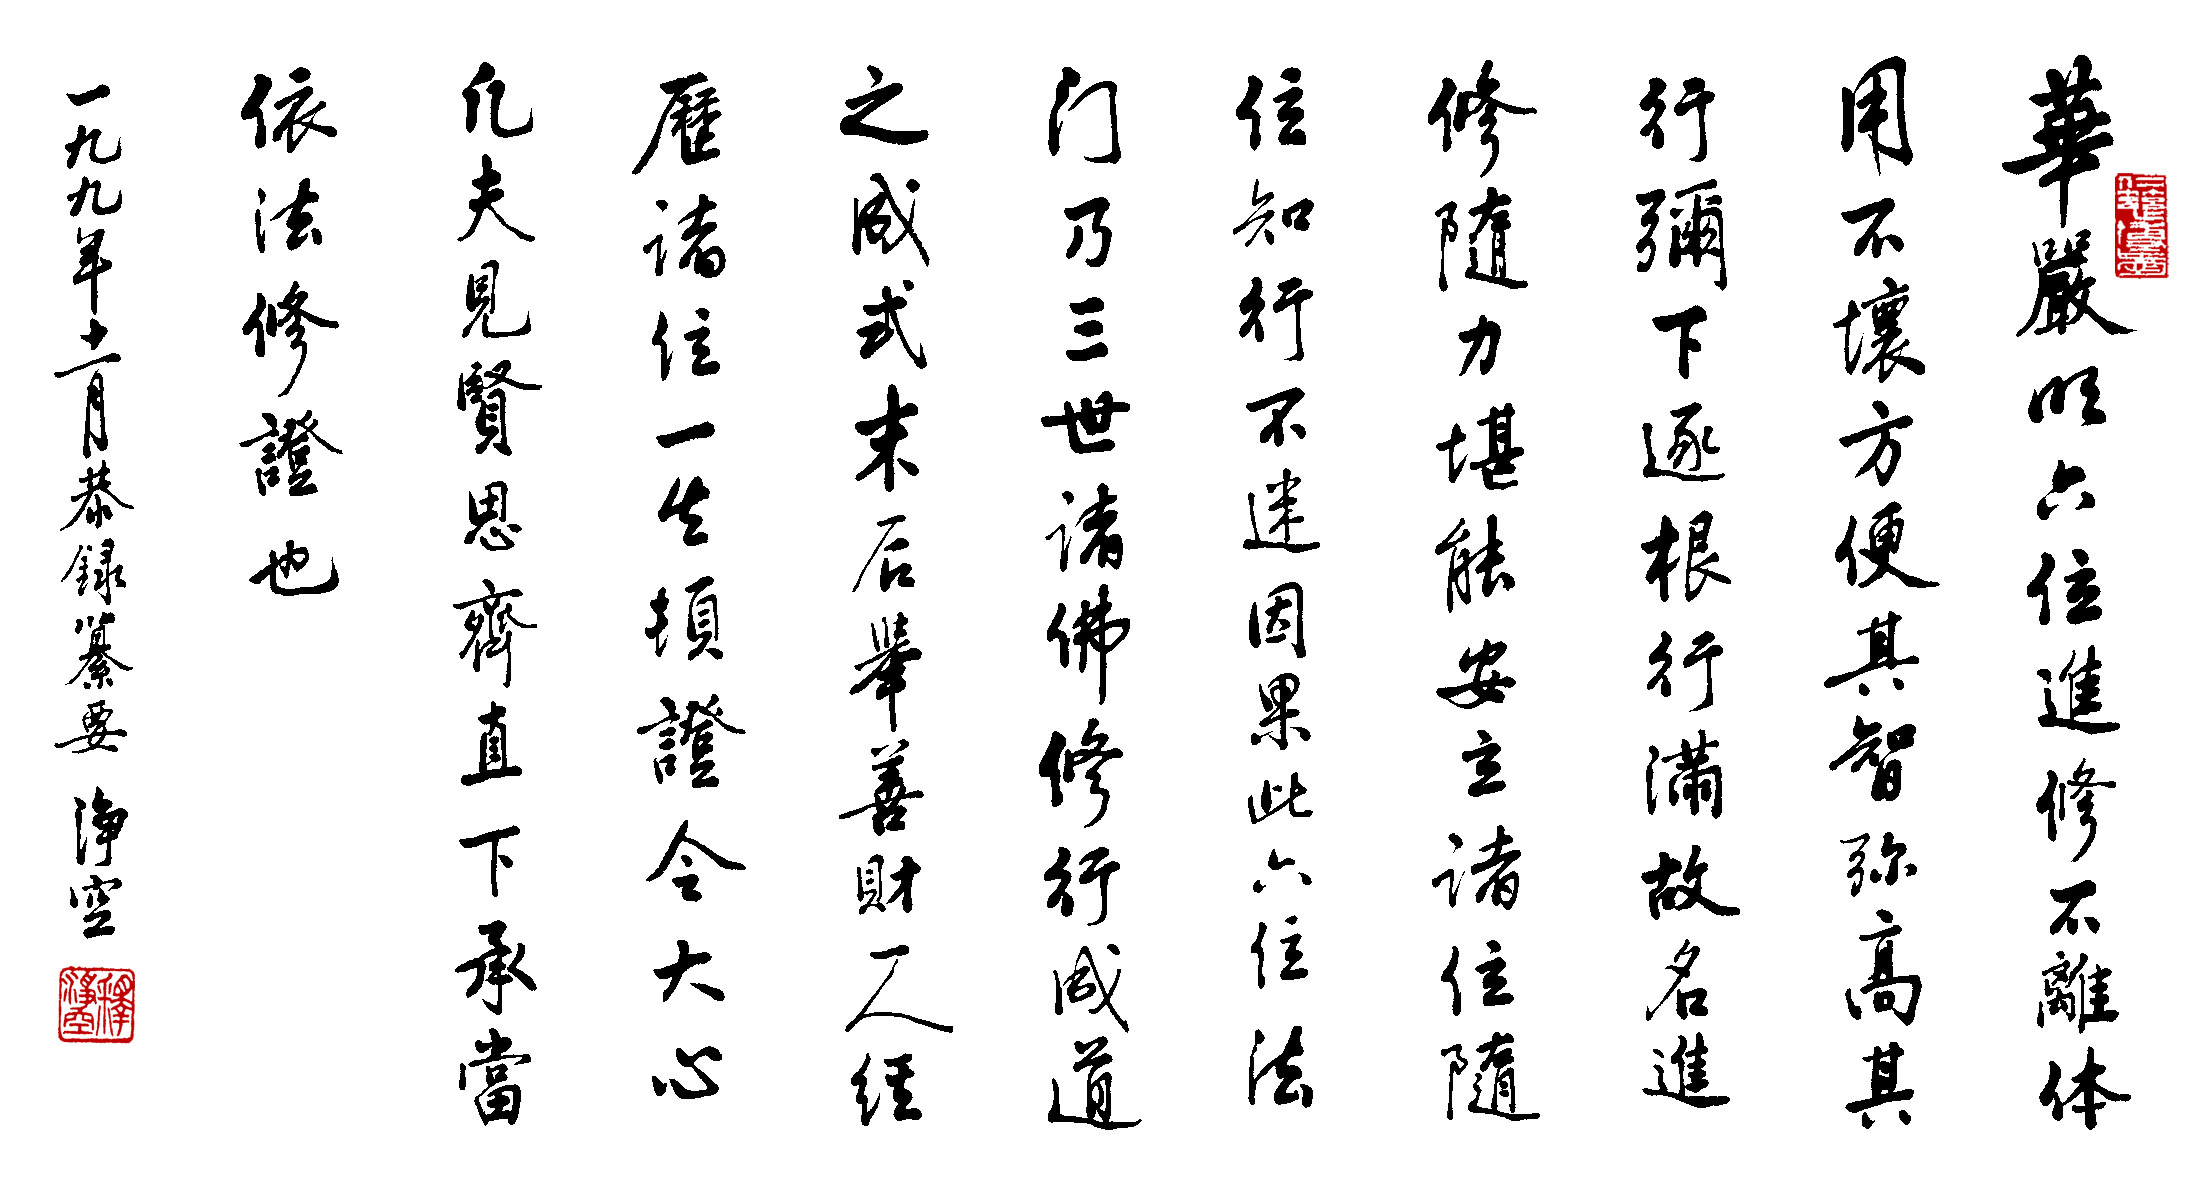 華嚴明六位進修不離体
用不壞方便其智弥高其
行彌下逐根行滿故名進
修隨力堪能安立諸位隨
位知行不迷因果此六位法
门乃三世諸佛修行成道
之成式末后舉善財一人經
歷諸位一生頓證令大心
凡夫見賢思齊直下承當
依法修證也
一九九年十二月恭録纂要 淨空
釋淨空